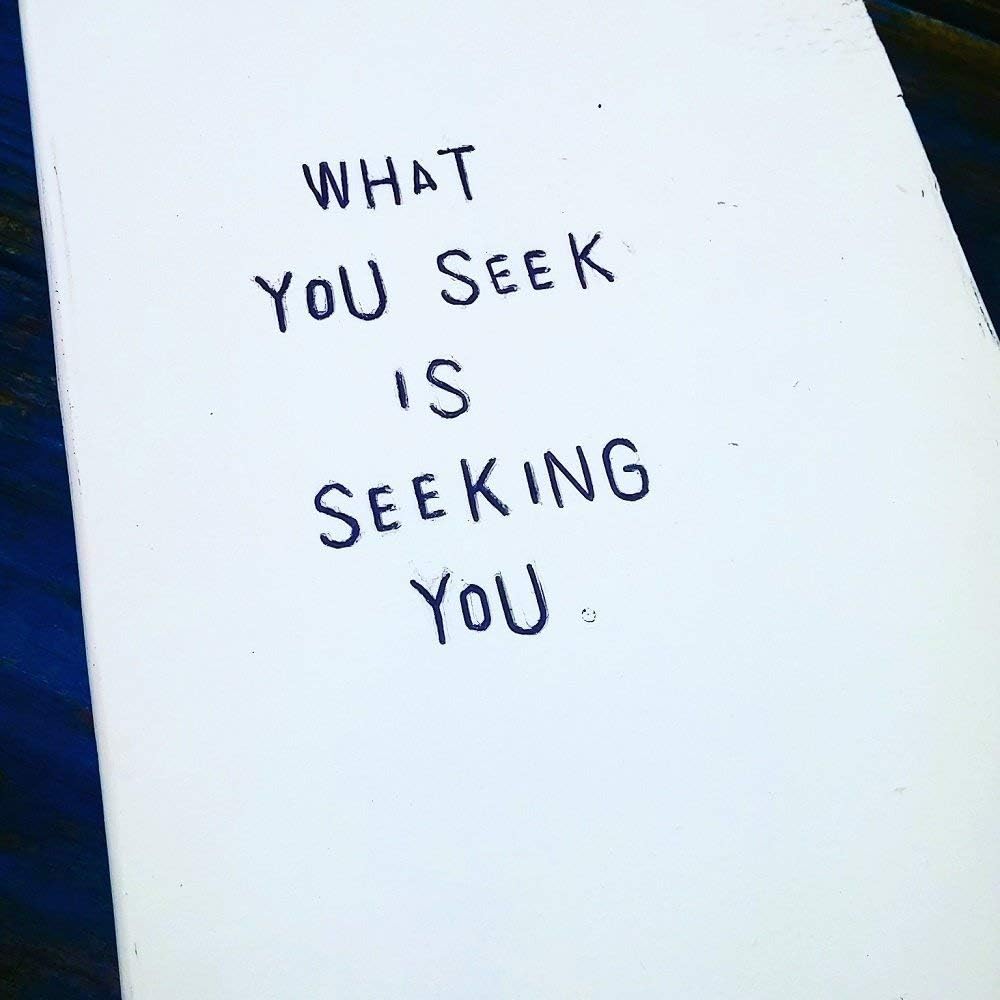 WHAT
YOU SEEK
IS
SEEKING
YOU.